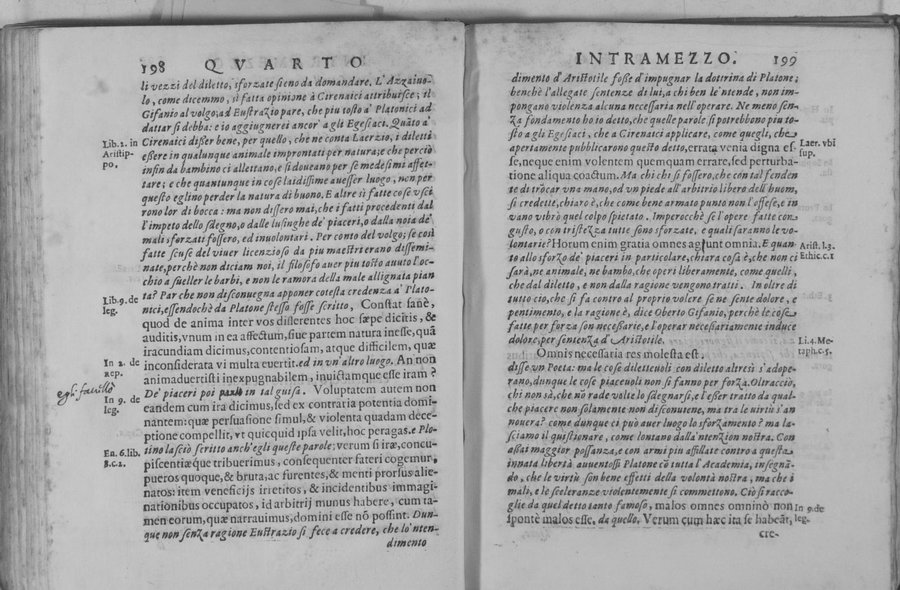 198 QVARTO
li vezzi del diletto, sforzate sieno da domandare. L'Azzaiuo-
lo, come dicemmo, sì fatta opinione à Cirenaici attribuisce; il
Gifanio al volgo; ad Eustrazio pare, che piu tosto a' Platonici ad
dattar si debba: e io aggiugnerei ancor' a gli Egesiaci. Quãto a'
Cirenaici disser bene, per quello, che ne conta Laerzio, i diletti
essere in qualunque animale improntati per natura; e che perciò
infin da bambino ci allettano, e si doueano per se medesimi affet-
tare; e che quantunque in cose laidissime auesser luogo, non per
questo eglino perder la natura di buono. E altre sì fatte cose vsci
rono lor di bocca: ma non dissero mai, che i fatti procedenti dal
l'impeto dello sdegno, o dalle lusinghe de' piaceri, o dalla noia de'
mali sforzati fossero, ed inuolontari. Per conto del volgo; se così
fatte scuse del viuer licenzioso da piu maestri erano dissemi-
nate, perchè non diciam noi, il filosofo auer piu tosto auuto l'oc-
chio a sueller le barbi, e non le ramora della male allignata pian
ta? Par che non disconuegna apponer cotesta credenza a' Plato-
nici, essendochè da Platone stesso fosse scritto, Constat sanè,
quod de anima inter vos disserentes hoc sæpe dicitis, &
auditis, vnum in ea affectum, siue partem natura inesse, quã
iracundiam dicimus, contentiosam, atque difficilem, quæ
inconsiderata vi multa euertit. ed in vn'altro luogo. An non
animaduertisti inexpugnabilem, inuictamque esse iram?
De' piaceri poi in tal guisa. Voluptatem autem non
eandem cum ira dicimus, sed ex contraria potentia domi-
nantem: quæ persuasione simul, & violenta quadam dece-
ptione compellit, vt quicquid ipsa velit, hoc peragas. e Plo-
tino lasciò scritto anch'egli queste parole; verum si iræ, concu-
piscentiæque tribuerimus, consequenter fateri cogemur,
pueros quoque, & bruta, ac furentes, & menti prorsus alie-
natos: item veneficijs irretitos, & incidentibus immagi-
nationibus occupatos, id arbitrij munus habere, cum ta-
men eorum, quæ narrauimus, domini esse nõ possint. Dun-
que non senza ragione Eustrazio si fece a credere, che lo'nten-
dimento
Lib. 2. in
Aristip-
po.
Lib. 9. de
leg.
In 2. de
rep.
In 9. de
leg.
En. 6. lib.
8. c. 2.
INTRAMEZZO. 199
dimento d'Aristotile fosse d'impugnar la dottrina di Platone;
benchè l'allegate sentenze di lui, a chi ben le'ntende, non im-
pongano violenza alcuna necessaria nell'operare. Ne meno sen-
za fondamento ho io detto, che quelle parole si potrebbono piu to-
sto a gli Egesiaci, che a Cirenaici applicare, come quegli, che
apertamente pubblicarono questo detto, errata venia digna es-
se, neque enim volentem quemquam errare, sed perturba-
tione aliqua coactum. Ma chi chi si fossero, che con tal fenden
te di trõcar vna mano, od vn piede all'arbitrio libero dell'huom,
si credette, chiaro è, che come bene armato punto non l'offese, e in
vano vibrò quel colpo spietato. Imperocchè se l'opere fatte con
gusto, o con tristezza tutte sono sforzate. e quali saranno le vo-
lontarie? Horum enim gratia omnes agunt omnia. E quan
to allo sforzo de' piaceri in particolare, chiara cosa è, che non ci
sarà, ne animale, ne bambo, che operi liberamente, come quelli,
che dal diletto, e non dalla ragione vengono tratti. In oltre di
tutto ciò, che si fa contro al proprio volere se ne sente dolore, e
pentimento, e la ragione è, dice Oberto Gifanio, perchè le cose
fatte per forza son necessarie, e l'operar necessariamente induce
dolore, per sentenza d'Aristotile.
Omnis necessaria res molesta est.
disse vn Poeta: ma le cose diletteuoli con diletto altresì s'adope-
rano, dunque le cose piaceuoli non si fanno per forza. Oltracciò,
chi non sà, che nõ rade volte lo sdegnarsi, e l'esser tratto da qual-
che piacere non solamente non disconuiene, ma tra le uirtù s'an
nouera? come dunque ci può auer luogo lo sforzamento? ma la-
sciamo il quistionare, come lontano dalla'ntenzion nostra. Con
assai maggior possanza, e con armi piu affilate contro a questa
innata libertà auuentossi Platone cõ tutta l'Academia, insegnã-
do, che le virtù son bene effetti della volontà nostra, ma che i
mali, e le sceleranze violentemente si commettono. Ciò si racco-
glie da quel detto tanto famoso, malos omnes omninò non
sponte malos esse. da quello. Verum cum hæc ita se habeãt,
cre-
Laer. vbi
sup.
Arist. l. 3.
Ethic. c. 1
Li. 4. Me-
taph. c. 5.
In 9. de
leg.